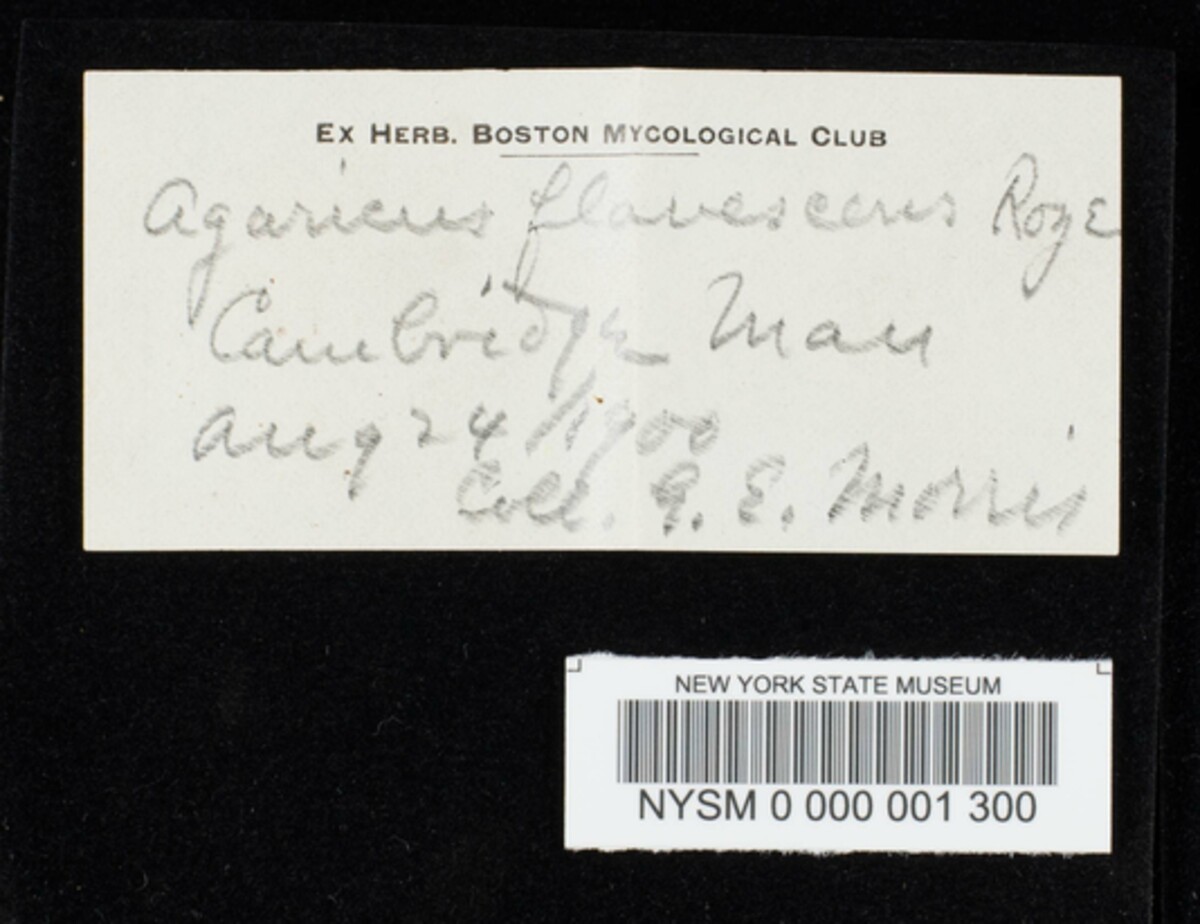 Ex Herb. Boston Mycological Club
Agaricus flavescens Roze
Cambridge Mass
Aug 24/1900
Coll. G. E. Morris
NEW YORK STATE MUSEUM
NYSM 0 000 001 300